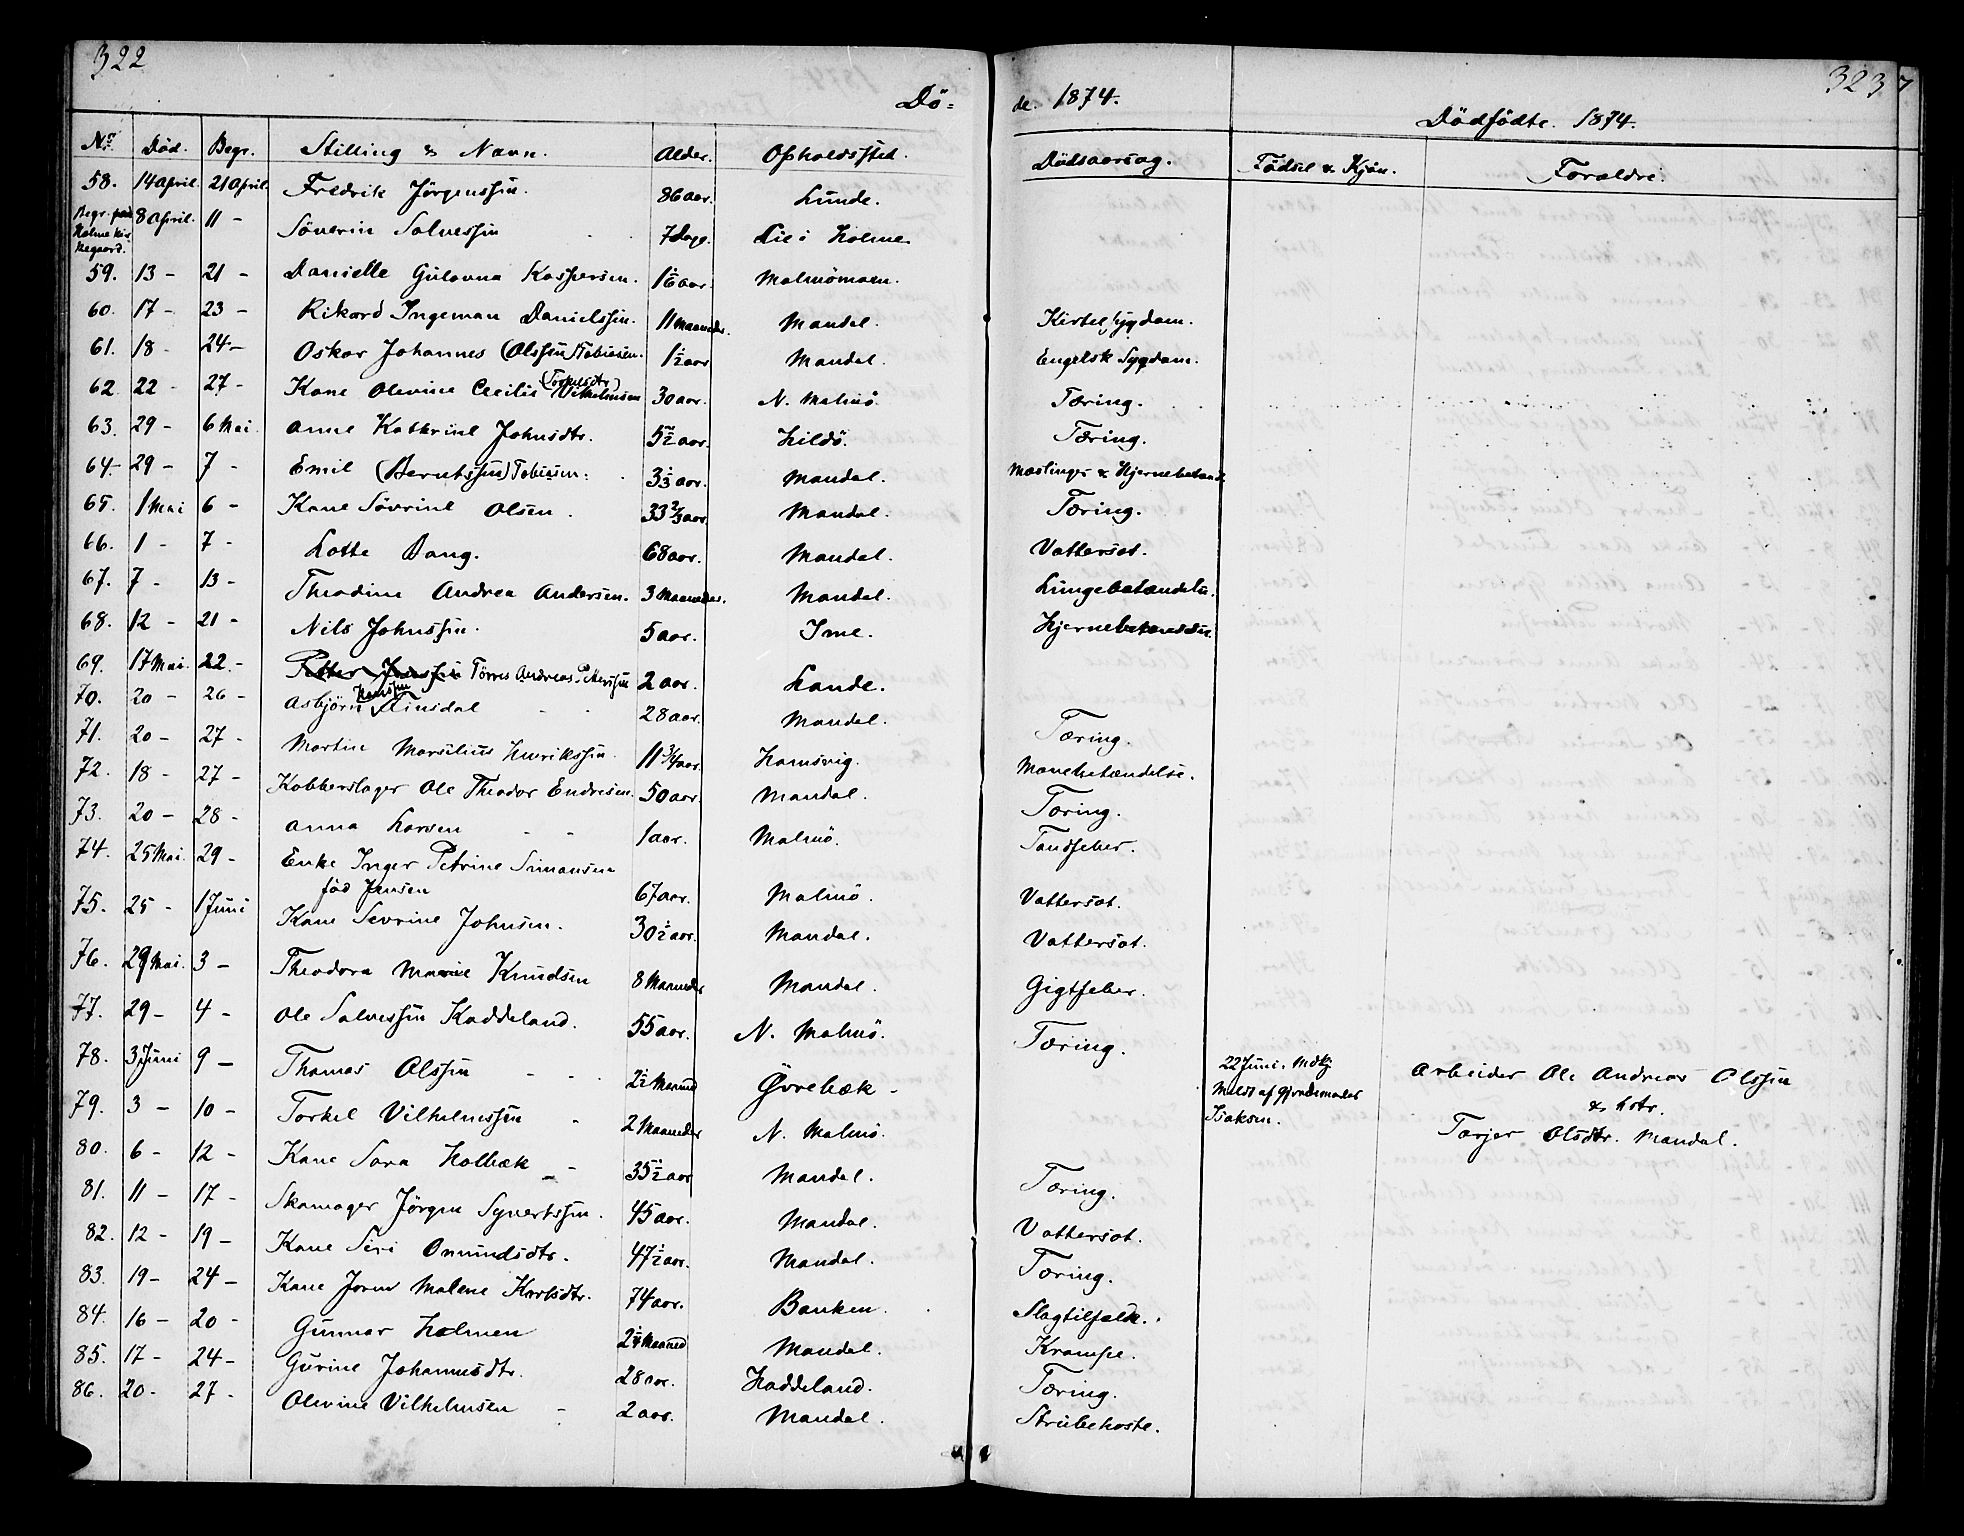 322
Dö=
Nr. Död. Begr. Stilling & Navn. Alder. Opholdssted.
58. 14 April. 21 April. Fredrik Jörgenssön. 86 aar. Lunde.
Begr. paa Holme Kirkegaard. 8 April. 11 - Söverin Salvessön 7 Dage. Lie i Holme
59. 13 - 21 - Danielle Gulovna Kaspersen. 1 1/6 aar. Malmömoen.
60. 17 - 23 - Rikard Ingeman Danielssön. 11 Maaneder. Mandal.
61. 18 - 24 - Oskar Johannes (Olssön) Tobiasen. 1 1/2 aar Mandal.
62. 22 - 27 - Kone Olevine Cecilie (Torkelsdtr) Vilhelmsen 30 aar. N. Malmö.
63. 29 - 6 Mai. Anne Kathrine Johnsdtr. 5 1/2 aar. Hildö.
64. 29 - 7 - Emil (Berntssön) Tobiasen. 3 1/3 aar. Mandal.
65. 1 Mai 6 - Kone Sövrine Olsen. 33 2/3 aar. Mandal.
66. 1 - 7 - Lotte Bang. 68 aar. Mandal.
67. 7 - 13 - Theodine Andrea Andersen. 3 Maaneder. Mandal.
68. 12 - 21 - Nils Johnssön. 5 aar. Ime.
69. 17 Mai. 22. - Petter Jenssön Törres Andreas Petterssön 2 aar. Lande.
70. 20 - 26 - Asbjörn Hanssön Tinsdal 28 aar. Mandal.
71. 20 - 27 - Martin Marselius Henrikssön. 11 3/4 aar. Homsvig.
72. 18 - 27 - Kobberslager Ole Theodor Endresen. 50 aar. Mandal.
73. 20 - 28 - Anna Larsen 1 aar. Malmö.
74. 25 Mai. 29 - Enke Inger Petrine Simonsen
föd Jensen 67 aar. Malmö.
75. 25 - 1 Juni Kone Sevrine Johnsen. 30 1/2 aar. Mandal.
76. 29 Mai. 3 - Theodora Marie Knudsen 8 Maaneder Mandal.
77. 29 - 4 - Ole Salvessön Haddeland. 55 aar. N. Malmö.
78. 3 Juni 9 - Thomas Olssön 2 1/2 Maaned Övrebæk -
79. 3 - 10 - Torkel Vilhelmssön 2 Maaneder N. Malmö.
80. 6 - 12 - Kone Sara Holbæk 35 1/2 aar Mandal.
81. 11 - 17 - Skomager Jörgen Syvertssön. 45 aar. Mandal.
82. 12 - 19 - Kone Siri Omundsdtr. 47 1/2 aar. Mandal.
83. 19 - 24 - Kone Joren Malene Karlsdtr. 74 aar. Banken.
84. 16 - 20 - Gunnar Holmen 2 1/4 Maaned Mandal.
85. 17 - 24 - Gurine Johannesdtr. 28 aar. Haddeland.
86. 20 - 27 - Olevine Vilhelmsen 2 aar. Mandal.
323
de. 1874.
Dödfödte. 1874.
Dödsaarsag. Födsel & Kjön. Forældre.
Kirtelsygdom.
Engelsk Sygdom.
Tæring.
Tæring.
Mæslinger & Hjernebetænd.
Tæring.
Vattersot.
Lungebetændelse.
Hjernebetændelse
Tæring.
Mavebetændelse.
Tæring.
Tandfeber.
Vattersot.
Vattersot.
Gigtfeber.
Tæring.
22 Juni. Mdkj. Arbeider Ole Andreas Olssön
Meldt af Gjordemoder & hstr.
Isaksen. Torjer Olsdtr. Mandal.
Tæring.
Vattersot.
Tæring.
Slagtilfælde.
Krampe.
Tæring.
Strubehoste.